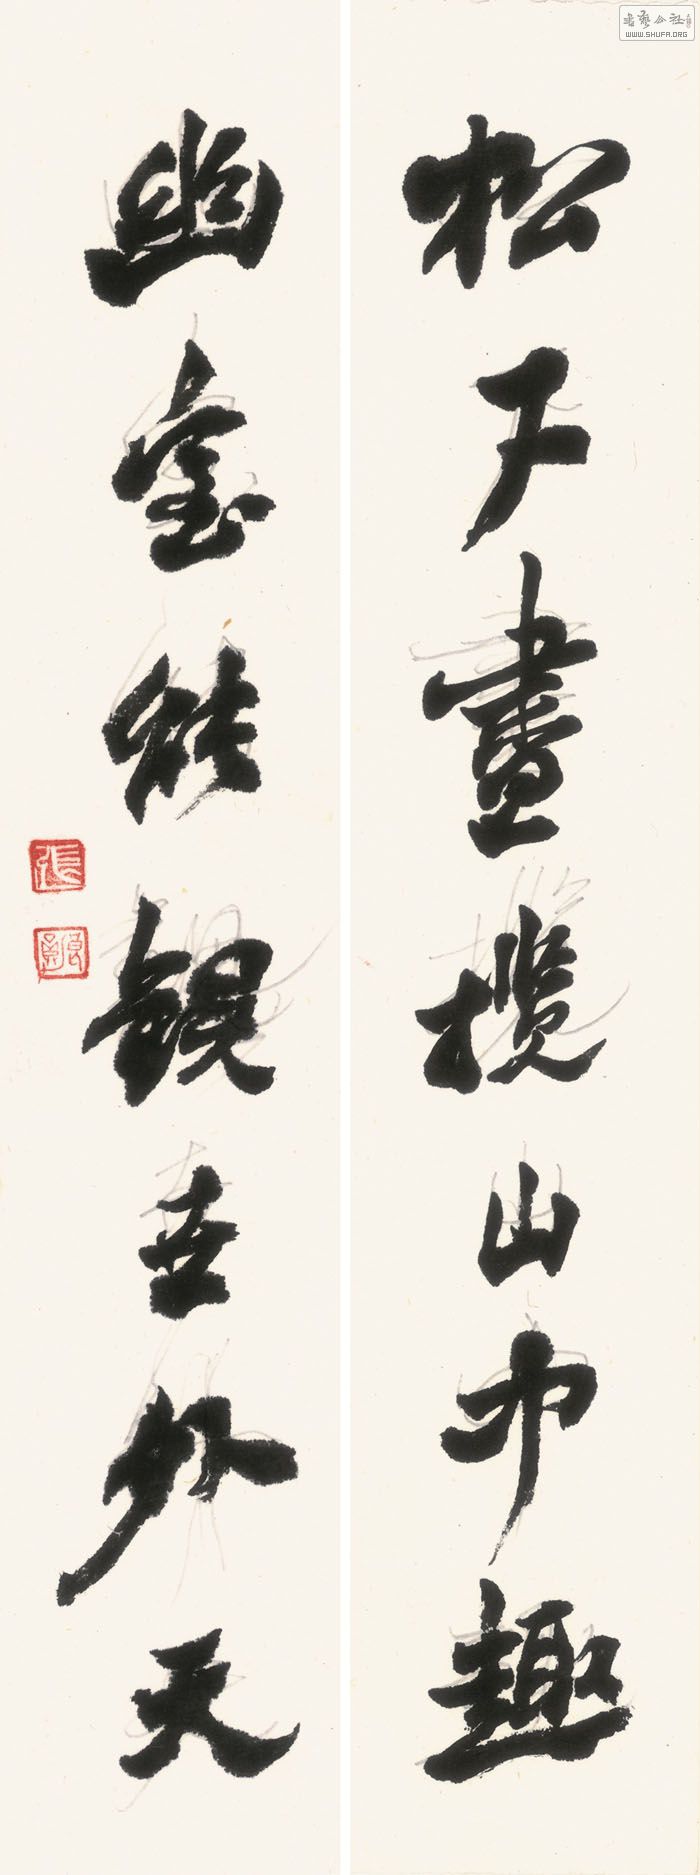 松下畫攬山中趣
幽室能觀世外天
張
書藝公社
WWW.SHUFA.ORG